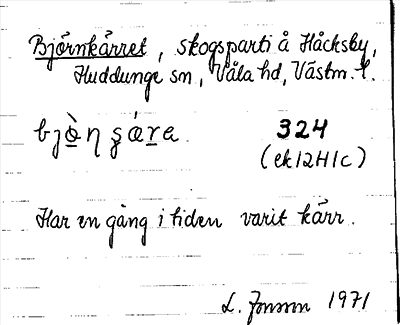 Björnkärret, skogsparti å Håcksby,
Huddunge sn, Våla hd, Västm. l.
bjò̱ŋʂár̲a 324
(ek 12H1c)
Har en gång i tiden varit kärr.
L. Jonsson 1971